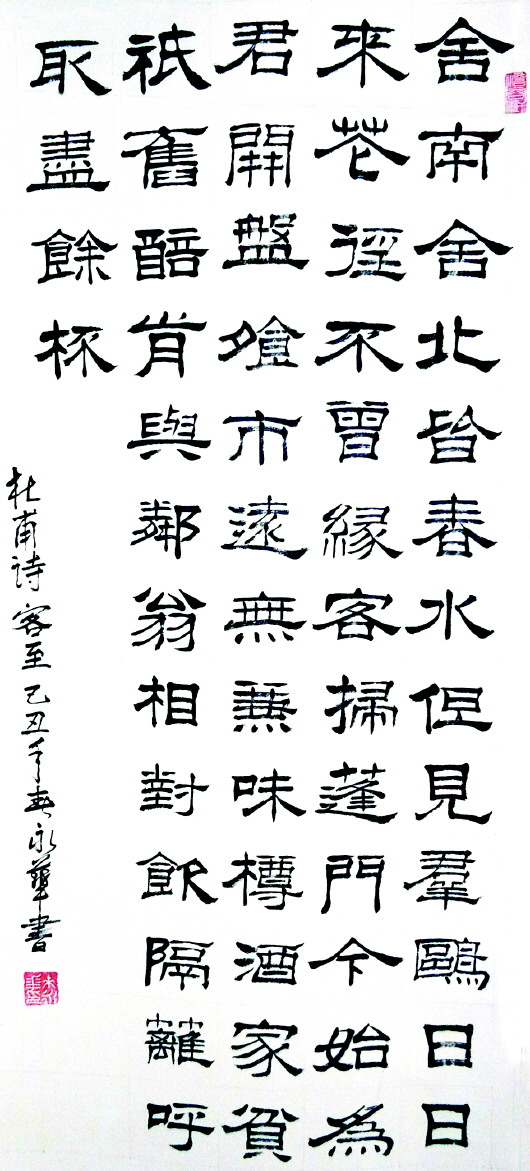 舍南舍北皆春水但見羣鷗日日
來花徑不曾緣客掃蓬門今始為
君開盤飧市遠無兼味樽酒家貧
祇舊醅肯與鄰翁相對飲隔籬呼
取盡餘杯
杜甫诗客至己丑年春永華書